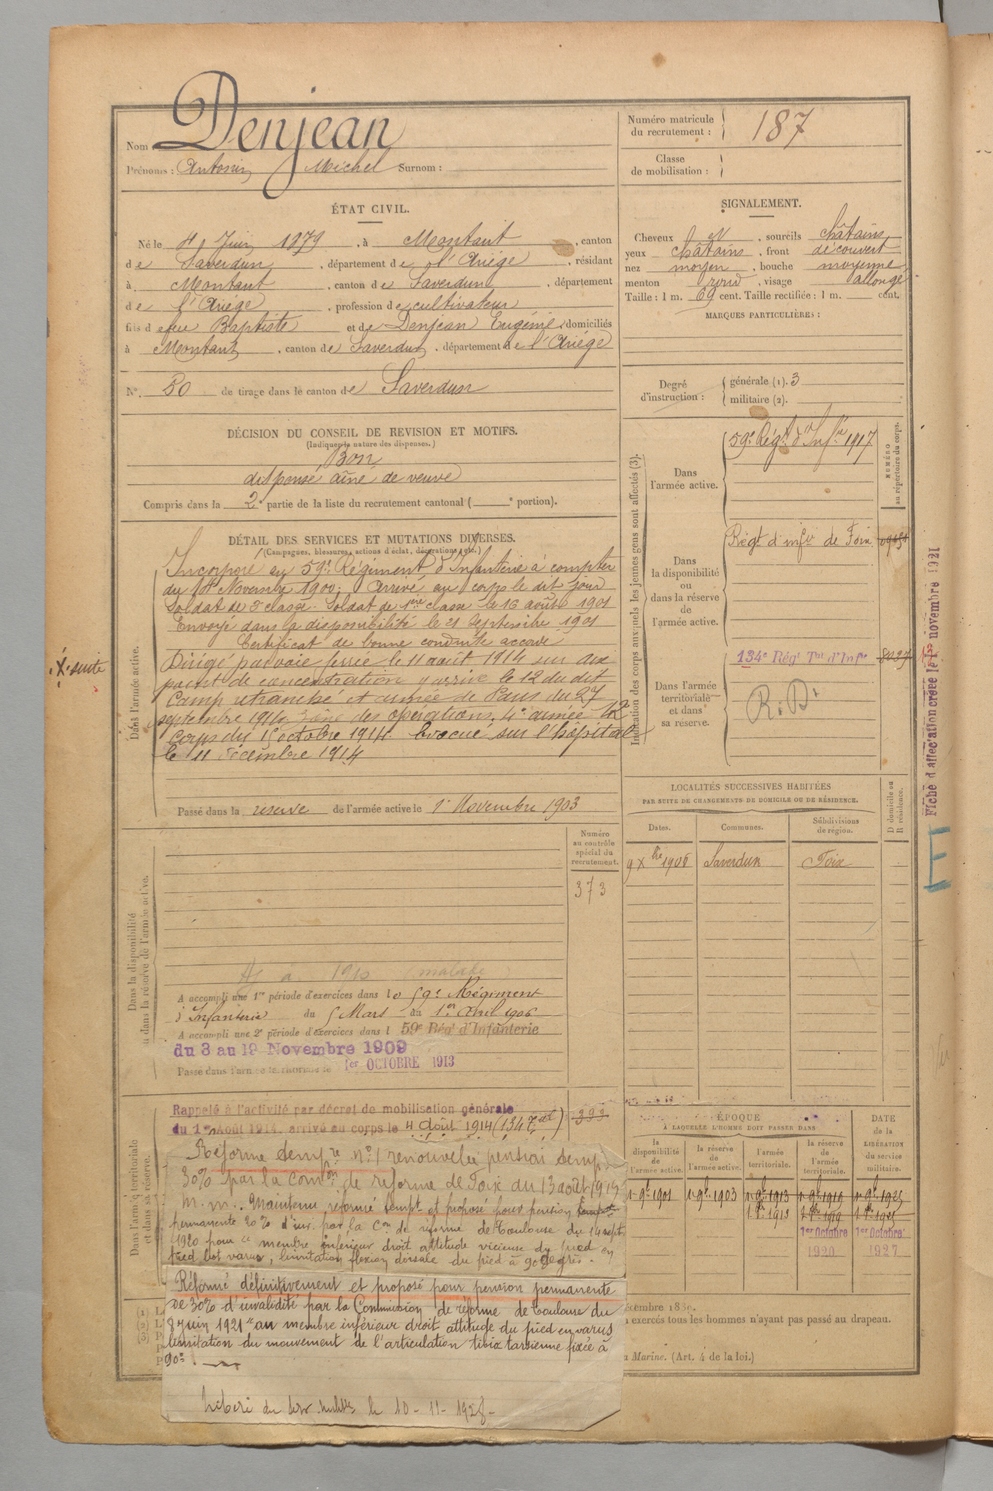 Nom Denjean
Prénoms : Antonin Michel Surnom :
Numéro matricule du recrutement : 187
Classe de mobilisation :
ÉTAT CIVIL.
Né le 4 Juin 1879, à Montaut, canton
de Saverdun, département de l'Ariège, résidant
à Montaut, canton de Saverdun, département
de l'Ariège, profession de cultivateur
fils de feu Baptiste et de Denjean Eugénie, domiciliés
à Montaut, canton de Saverdun, département de l'Ariège
N° 50 de tirage dans le canton de Saverdun
SIGNALEMENT.
Cheveux et, sourcils châtains
yeux châtains, front découvert
nez moyen, bouche moyenne
menton rond, visage allongé
Taille : 1 m. 69 cent. Taille rectifiée : 1 m. cent.
MARQUES PARTICULIÈRES :
Degré d'instruction : générale (1). 3
militaire (2).
DÉCISION DU CONSEIL DE REVISION ET MOTIFS.
(Indiquer la nature des dispenses.)
Bon
dispensé aîné de veuve
Compris dans la 2e partie de la liste du recrutement cantonal ( e portion).
DÉTAIL DES SERVICES ET MUTATIONS DIVERSES.
(Campagnes, blessures, actions d'éclat, décorations, etc.)
Dans l'armée active.
Incorporé au 59e Régiment d'Infanterie à compter
du Novembre 1900. Arrivé au corps le dit jour
Soldat de 2e classe. Soldat de 1ère classe le 16 août 1901
Envoyé dans la disponibilité le 21 Septembre 1901
Certificat de bonne conduite accordé
Dirigé par voie ferrée le 11 août 1914 sur
point de concentration y arrivé le 12 du dit
Camp retranché et armée de Paris du 27
septembre 1914 zone des opérations, 4e armée 12e
Corps du 1er octobre 1914. Evacué sur l'hôpital
le 11 décembre 1914
X suite
Passé dans la réserve de l'armée active le 1er Novembre 1903
Indication des corps auxquels les jeunes gens sont affectés (3).
NUMÉRO au répertoire du corps.
Dans l'armée active.
59e Régt d'Infie 1917
Dans la disponibilité ou dans la réserve de l'armée active.
Régt d'infie de Foix
Dans l'armée territoriale et dans sa réserve.
134e Régt Tal d'Infie
R. D.
Fiche d'affectation créée le 1er novembre 1921
LOCALITÉS SUCCESSIVES HABITÉES
PAR SUITE DE CHANGEMENTS DE DOMICILE OU DE RÉSIDENCE.
Dates. Communes. Subdivisions de région.
D domicile ou R résidence.
9 Xbre 1905 Saverdun Foix
Dans la disponibilité ou dans la réserve de l'armée active.
Numéro au contrôle spécial du recrutement.
373
1910 (malade)
A accompli une 1re période d'exercices dans le 59e Régiment
d'Infanterie du 5 Mars au 1er Avril 1906
A accompli une 2e période d'exercices dans l 59e Régt d'Infanterie
du 3 au 19 Novembre 1909
Passé dans l'armée territoriale le 1er OCTOBRE 1913
Dans l'armée territoriale et dans sa réserve.
Rappelé à l'activité par décret de mobilisation générale
du 1er Août 1914, arrivé au corps le 4 Août 1914 (134e)
Réforme n° 1 renouvelée pension
30% par la Comon de réforme de Foix du 13 août 1919
Maintenu réformé et proposé pour pension
permanente 20% d'inv. par la Con de réforme de Toulouse du 14 sept
1920 pour membre inférieur droit attitude vicieuse du pied en
varus, limitation flexion dorsale du pied à 90 degrés.
Réformé définitivement et proposé pour pension permanente
de 30% d'invalidité par la Commission de réforme de Toulouse du
8 Juin 1921 au membre inférieur droit attitude du pied en varus
limitation du mouvement de l'articulation tibia tarsienne fixée à
90°.
Libéré du serv. le 10-11-1928
ÉPOQUE
À LAQUELLE L'HOMME DOIT PASSER DANS
la disponibilité de l'armée active.
la réserve de l'armée active.
l'armée territoriale.
la réserve de l'armée territoriale.
DATE de la LIBÉRATION du service militaire.
1903
1er Octobre 1920
1er Octobre 1927
exercés tous les hommes n'ayant pas passé au drapeau.
Marine. (Art. 4 de la loi.)